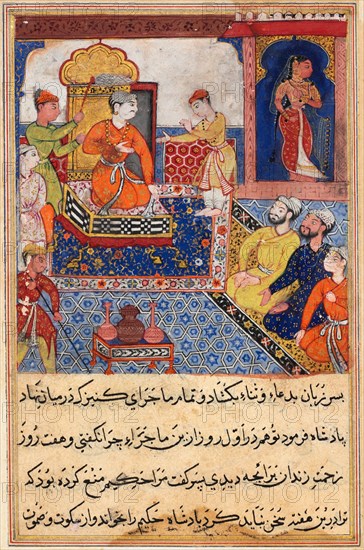 پسر زبان بدعاء و ثناء بکشاد و تمام ماجرای کنیزک درمیان نهاد
پادشاه فرمود تو هم در اول روز ازین ماجراء چرا نگفتی و هفت روز
زحمت زندان برای چه دیدی پسر گفت مرا حکیم منع کرده بود که
ترا درین هفته سخن نباید کرد پادشاه حکیم را بخواند و از سکوت و صموت